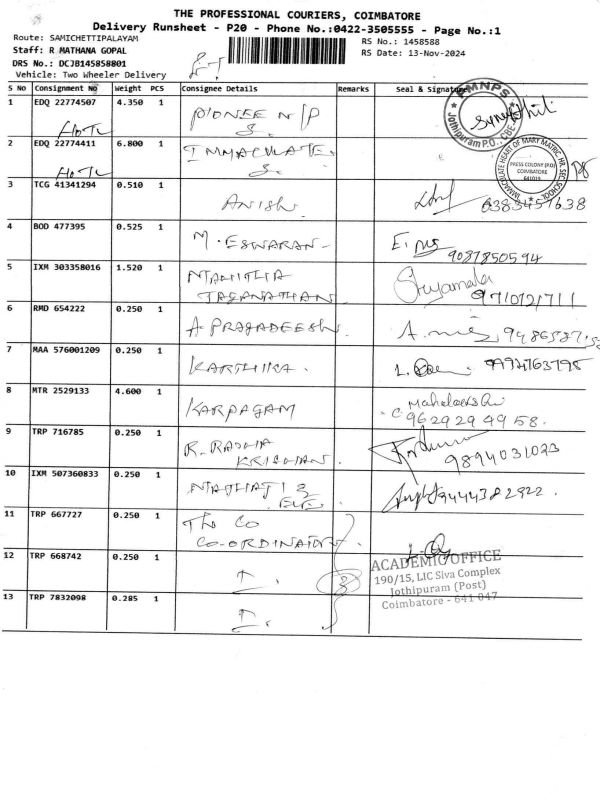 THE PROFESSIONAL COURIERS, COIMBATORE
Delivery Runsheet - P20 - Phone No.:0422-3505555 - Page No.:1
Route: SAMICHETTIPALAYAM
RS No.: 1458588
Staff: R MATHANA GOPAL
RS Date: 13-Nov-2024
DRS No.: DCJB145858801
Vehicle: Two Wheeler Delivery
S No Consignment No Weight PCS Consignee Details Remarks Seal & Signature
1 EDQ 22774507 4.350 1 PIONEER N/P
Jothipuram P.O., CBE
2 EDQ 22774411 6.800 1 IMMACULATE.
IMMACULATE HEART OF MARY MATRIC. HR. SEC. SCHOOL
PRESS COLONY (P.O)
COIMBATORE
641019
3 TCG 41341294 0.510 1 ANISH
4 BOD 477395 0.525 1 M. ESWARAN
9087850594
5 IXM 303358016 1.520 1
JAGANATHAN
Shyamala
6 RMD 654222 0.250 1 A PRAGADEESH
7 MAA 576001209 0.250 1 KARTHIKA.
9994763795
8 MTR 2529133 4.600 1 KARPAGAM
9629294958.
9 TRP 716785 0.250 1 R. RADHA
KRISHNAN.
9894031023
10 IXM 507360833 0.250 1
9444382922.
11 TRP 667727 0.250 1 The CO
CO-ORDINATOR
12 TRP 668742 0.250 1
ACADEMIC OFFICE
190/15, LIC Siva Complex
Jothipuram (Post)
Coimbatore - 641 047
13 TRP 7832098 0.285 1